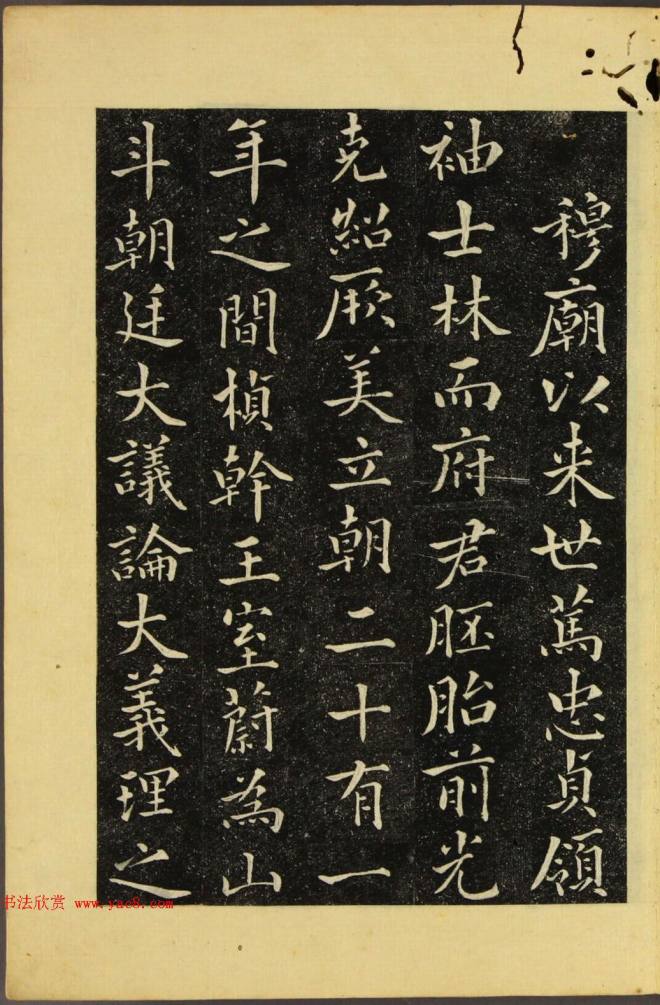 穆廟以来世篤忠貞領
袖士林而府君胚胎前光
克紹厥美立朝二十有一
年之間楨幹王室蔚為山
斗朝廷大議論大義理之
书法欣赏 www.yac8.com